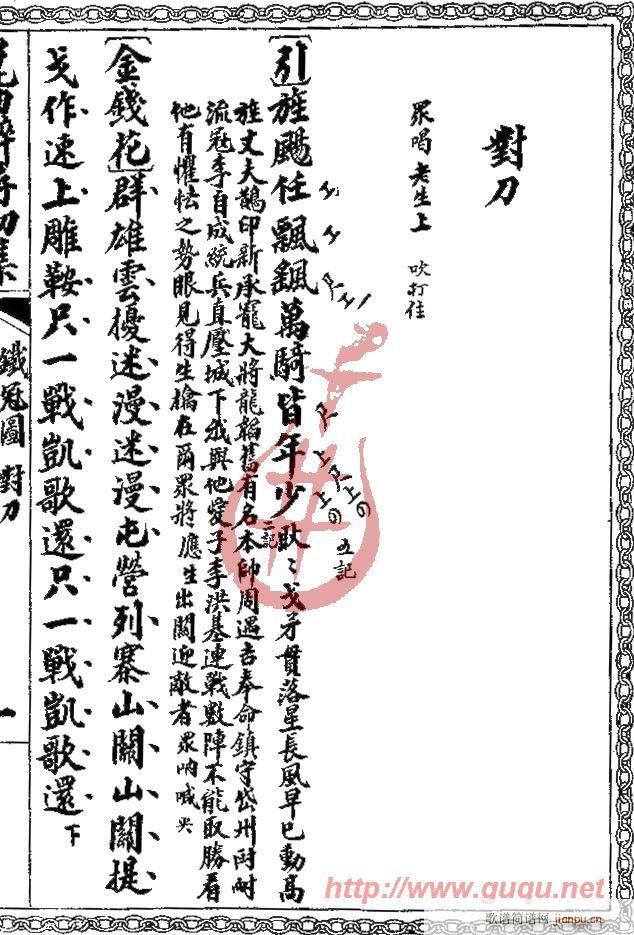 對刀
眾喝老生上 吹打住
[引]旌颺任飄颻萬騎皆年少 戈矛貫落星長風早已動高
旌丈大鵲印新承寵大將龍韜舊有名本帥周遇吉奉命鎮守岱州
流寇李自成統兵直壓城下我與他愛子李洪基連戰數陣不能取勝看
他有懼怯之勢眼見得生擒在爾眾將應生出關迎敵者眾吶喊
[金錢花]群雄雲擾迷漫迷漫屯營列寨山關山關提
戈作速上雕鞍只一戰凱歌還只一戰凱歌還下
二記
五記
鐵冠圖 對刀
一
http://www.guqu.net
歌谱简谱网 jianpu.cn